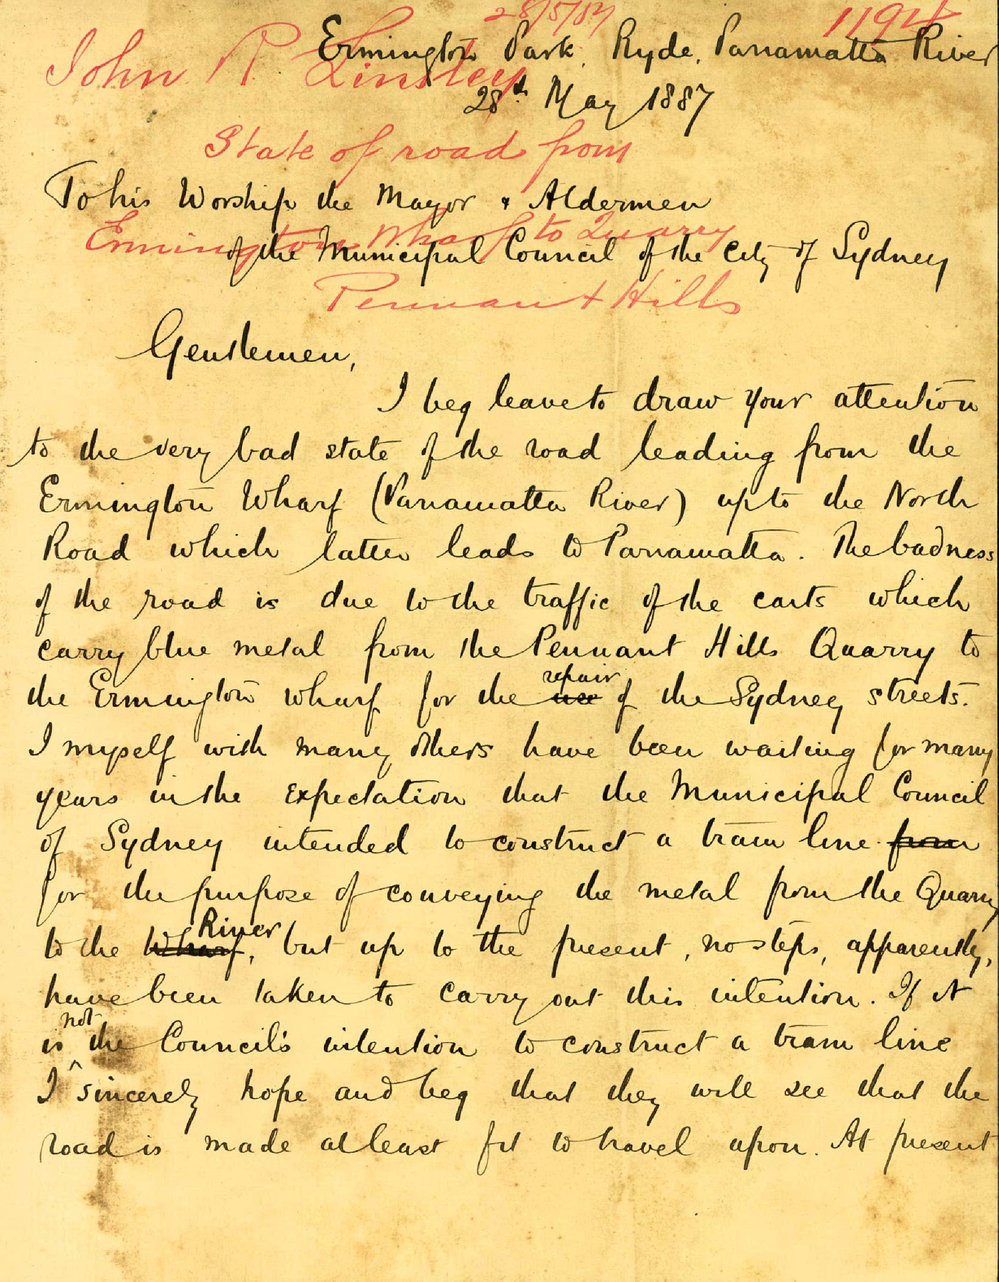 28/5/87 1194
Ermington Park, Ryde, Parramatta River
John R Linsley
28th May 1887
State of road from
To his Worship the Mayor & Aldermen
Ermington Wharf to Quarry
of the Municipal Council of the City of Sydney
Pennant Hills
Gentlemen,
I beg leave to draw your attention
to the very bad state of the road leading from the
Ermington Wharf (Parramatta River) up to the North
Road which latter leads to Parramatta. The badness
of the road is due to the traffic of the carts which
carry blue metal from the Pennant Hills Quarry to
the Ermington wharf for the use repair of the Sydney streets.
I myself with many others have been waiting for many
years in the expectation that the Municipal Council
of Sydney intended to construct a tram line from
for the purpose of conveying the metal from the Quarry
to the Wharf River, but up to the present, no steps, apparently,
have been taken to carry out this intention. If it
is not the Council's intention to construct a tram line
I sincerely hope and beg that they will see that the
road is made at least fit to travel upon. At present